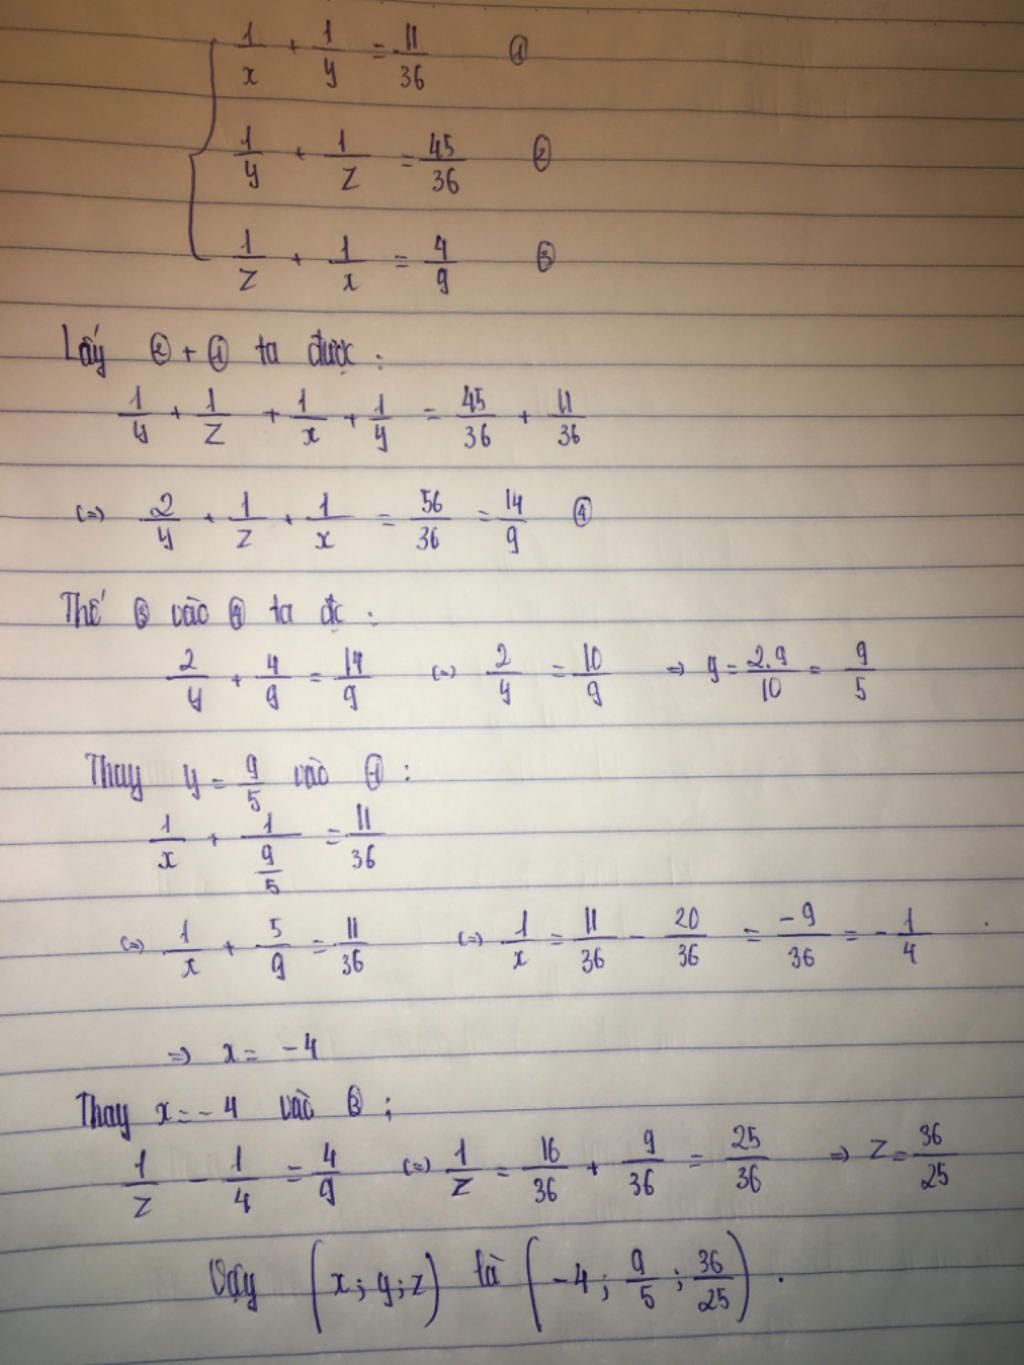 1/x + 1/y = 11/36 ①
1/y + 1/z = 45/36 ②
1/z + 1/x = 4/9 ③
Lấy ② + ① ta được :
1/y + 1/z + 1/x + 1/y = 45/36 + 11/36
(=) 2/y + 1/z + 1/x = 56/36 = 14/9 ④
Thế ③ vào ④ ta đc :
2/y + 4/9 = 14/9 (=) 2/y = 10/9 => y = 2.9/10 = 9/5
Thay y = 9/5 vào ① :
1/x + 1/(9/5) = 11/36
(=) 1/x + 5/9 = 11/36 (=) 1/x = 11/36 - 20/36 = -9/36 = -1/4
=> x = -4
Thay x = -4 vào ③ ;
1/z - 1/4 = 4/9 (=) 1/z = 16/36 + 9/36 = 25/36 => z = 36/25
Vậy (x ; y ; z) là (-4 ; 9/5 ; 36/25) .